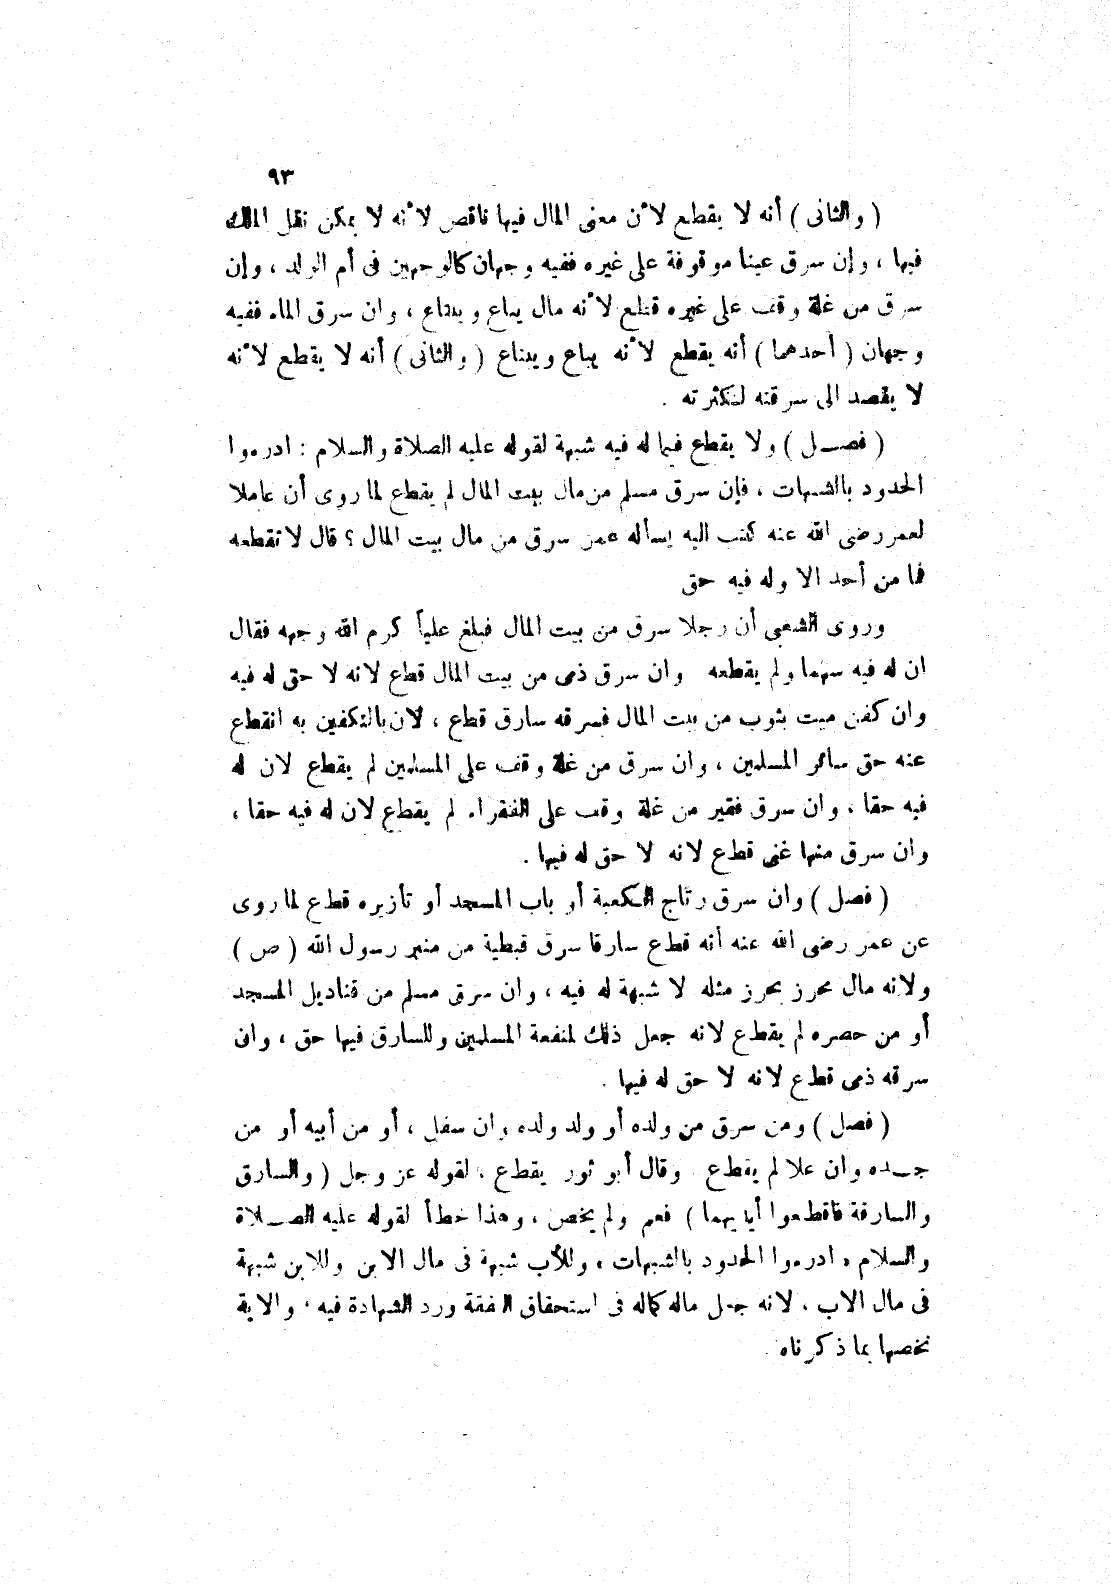 ٩٣
( والثانى ) أنه لا يقطع لأن معنى المال فيها ناقص لأنه لا يمكن نقل الملك
فيها ، وإن سرق عينا موقوفة على غيره ففيه وجهان كالوجهين فى أم الولد ، وإن
سرق من غلة وقف على غيره قطع لأنه مال يباع ويبتاع ، وان سرق الماء ففيه
وجهان ( أحدهما ) أنه يقطع لأنه يباع ويبتاع ( والثانى ) أنه لا يقطع لأنه
لا يقصد الى سرقته لكثرته .
( فصـــل ) ولا يقطع فيما له فيه شبهة لقوله عليه الصلاة والسلام : ادرءوا
الحدود بالشبهات ، فإن سرق مسلم من مال بيت المال لم يقطع لما روى أن عاملا
لعمر رضى الله عنه كتب اليه يسأله عمن سرق من مال بيت المال ؟ قال لا تقطعه
فما من أحد الا وله فيه حق
وروى الشعبى أن رجلا سرق من بيت المال فبلغ علياً كرم الله وجهه فقال
ان له فيه سهما ولم يقطعه وان سرق ذمى من بيت المال قطع لانه لا حق له فيه
وان كفن ميت بثوب من بيت المال فسرقه سارق قطع ، لان بالتكفين به انقطع
عنه حق سائر المسلمين ، وان سرق من غلة وقف على المسلمين لم يقطع لان له
فيه حقا ، وان سرق فقير من غلة وقف على الفقراء لم يقطع لان له فيه حقا ،
وان سرق منها غنى قطع لانه لا حق له فيها .
( فصل ) وان سرق رتاج الكعبة أو باب المسجد أو تأزيره قطع لما روى
عن عمر رضى الله عنه أنه قطع سارقا سرق قبطية من منبر رسول الله ( ص )
ولانه مال محرز بحرز مثله لا شبهة له فيه ، وان سرق مسلم من قناديل المسجد
أو من حصره لم يقطع لانه جعل ذلك لمنفعة المسلمين وللسارق فيها حق ، وان
سرقه ذمى قطع لانه لا حق له فيها .
( فصل ) ومن سرق من ولده أو ولد ولده وان سفل ، أو من أبيه أو من
جـــده وان علا لم يقطع وقال أبو ثور يقطع ، لقوله عز وجل ( والسارق
والسارقة فاقطعوا أيديهما ) فعم ولم يخص ، وهذا خطأ لقوله عليه الصـــلاة
والسلام ، ادرءوا الحدود بالشبهات ، وللأب شبهة فى مال الابن وللابن شبهة
فى مال الاب ، لانه جعل ماله كماله فى استحقاق النفقة ورد الشهادة فيه ، والاية
نخصها بما ذكرناه .